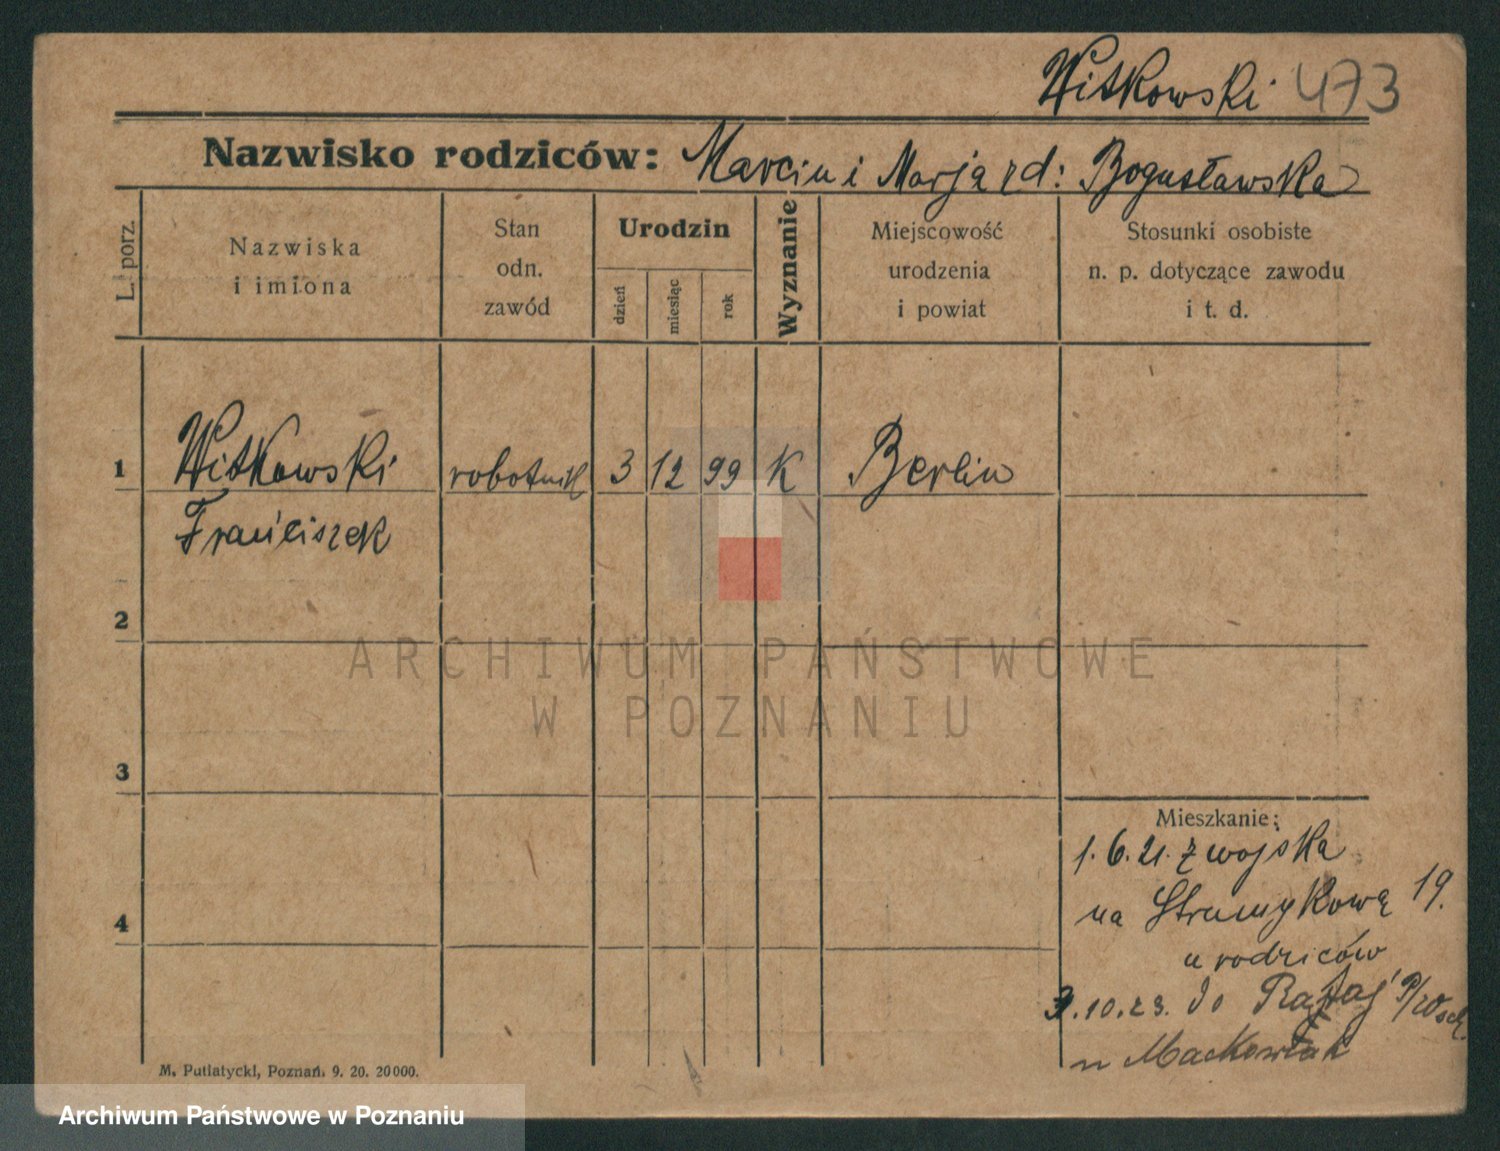 Witkowski 473
Nazwisko rodziców: Marcin i Marja zd: Bogusławska
L. porz.
Nazwiska
i imiona
Stan
odn.
zawód
Urodzin
dzień
miesiąc
rok
Wyznanie
Miejscowość
urodzenia
i powiat
Stosunki osobiste
n. p. dotyczące zawodu
i t. d.
1 Witkowski robotnik 3 12 99 K Berlin
Franciszek
2
3
4
ARCHIWUM PAŃSTWOWE
W POZNANIU
Mieszkanie:
1.6.21. z wojska
na Strumykową 19.
u rodziców
3.10.23. do
u Maćkowiak
M. Putiatycki, Poznań. 9. 20. 20000.
Archiwum Państwowe w Poznaniu